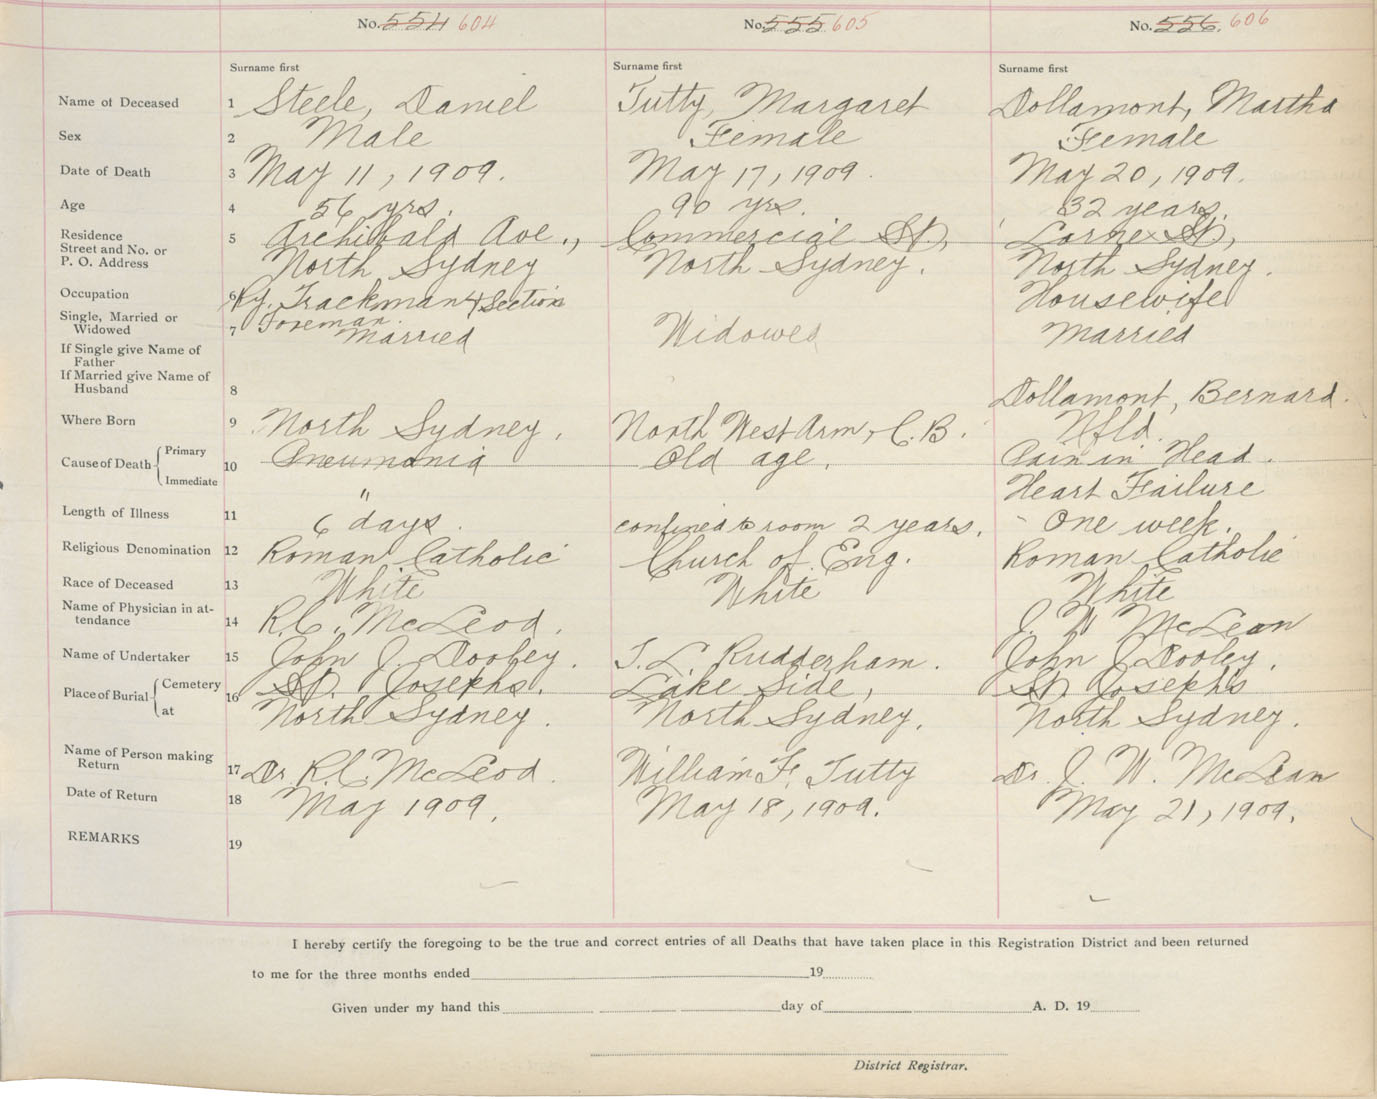 No. 554 604 No. 555 605 No. 556 606
Surname first Surname first Surname first
Name of Deceased 1 Steele, Daniel Tutty, Margaret Dollamont, Martha
Sex 2 Male Female Female
Date of Death 3 May 11, 1909. May 17, 1909. May 20, 1909.
Age 4 56 yrs. 90 yrs. 32 years.
Residence 5 Archibald Ave., Commercial St., Lorne St,
Street and No. or
P. O. Address North Sydney North Sydney. North Sydney.
Occupation 6 Ry. Trackman & Section Housewife
Foreman
Single, Married or
Widowed 7 Married Widowed Married
If Single give Name of
Father
If Married give Name of
Husband 8 Dollamont, Bernard.
Where Born 9 North Sydney. North West Arm, C.B. Nfld.
Cause of Death Primary 10 Pneumonia Old age. Pain in Head.
Immediate " Heart Failure
Length of Illness 11 6 days. confined to room 2 years. One week.
Religious Denomination 12 Roman Catholic Church of Eng. Roman Catholic
Race of Deceased 13 White White White
Name of Physician in at-
tendance 14 R.C. McLeod. J. W McLean
Name of Undertaker 15 John J. Dooley. T. L. Rudderham. John J Dooley.
Place of Burial Cemetery 16 St. Josephs. Lake Side, St. Joseph's
at North Sydney. North Sydney. North Sydney.
Name of Person making
Return 17 Dr. R.C. McLeod. William F. Tutty Dr. J. W. McLean
Date of Return 18 May 1909. May 18, 1909. May 21, 1909.
REMARKS 19
I hereby certify the foregoing to be the true and correct entries of all Deaths that have taken place in this Registration District and been returned
to me for the three months ended 19
Given under my hand this day of A. D. 19
District Registrar.